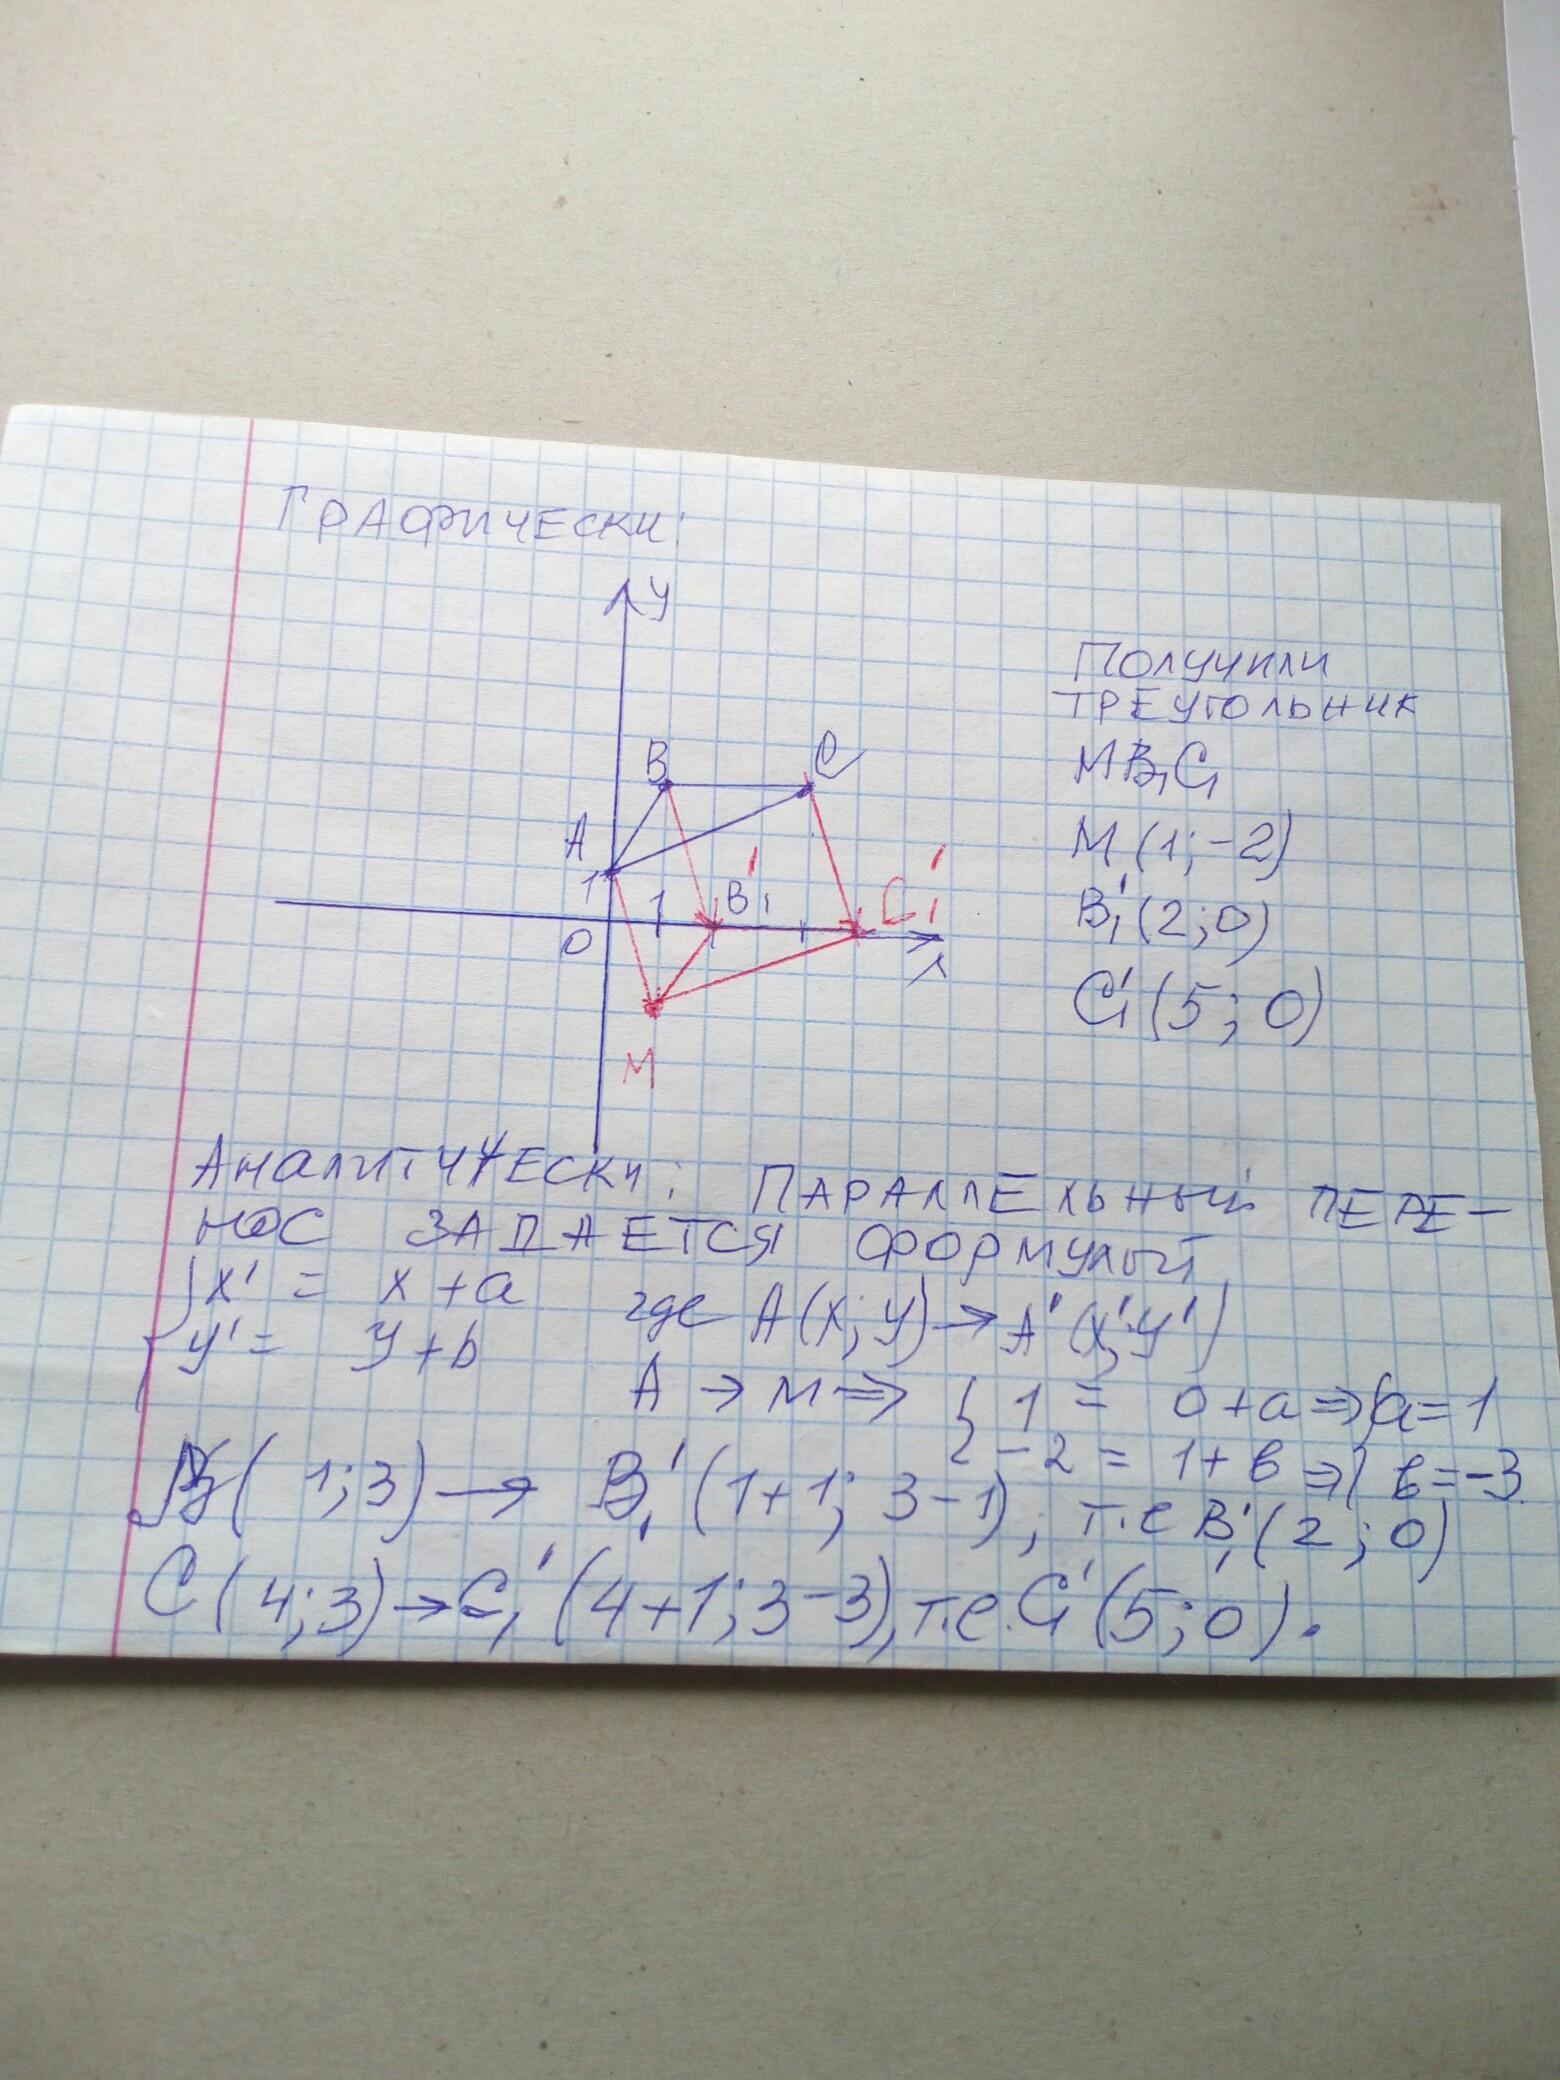 ГРАФИЧЕСКИ:
y
B
C
A
1
1
B'₁
C'₁
0
x
M
ПОЛУЧИЛИ
ТРЕУГОЛЬНИК
MB₁C₁
M(1;-2)
B'₁(2;0)
C'₁(5;0)
АНАЛИТИЧЕСКИ: ПАРАЛЛЕЛЬНЫЙ ПЕРЕ-
НОС ЗАДАЕТСЯ ФОРМУЛОЙ
{x' = x+a где A(x;y)→A'(x';y')
y' = y+b
A→M⇒ {1 = 0+a⇒{a=1
-2 = 1+в⇒{в=-3
B(1;3)→B'₁(1+1; 3-1), т.е B'₁(2;0)
C(4;3)→C'₁(4+1;3-3), т.е. C'₁(5;0).